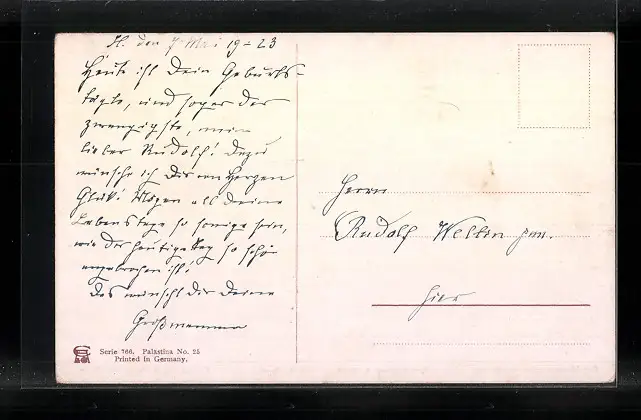 H. den 7. Mai 19-23
Heute ist Dein Geburts-
tägle, und sogar der
zwanzigste, mein
lieber Rudolf! Dazu
wünsche ich Dir von Herzen
Glück! Mögen all Deine
Lebenstage so sonnig sein,
wie der heutige Tag so schön
angebrochen ist!
Das wünscht Dir Deine
Großmamma
Herrn
Rudolf Welten jun.
hier
Serie 766. Palästina No. 25
Printed in Germany.